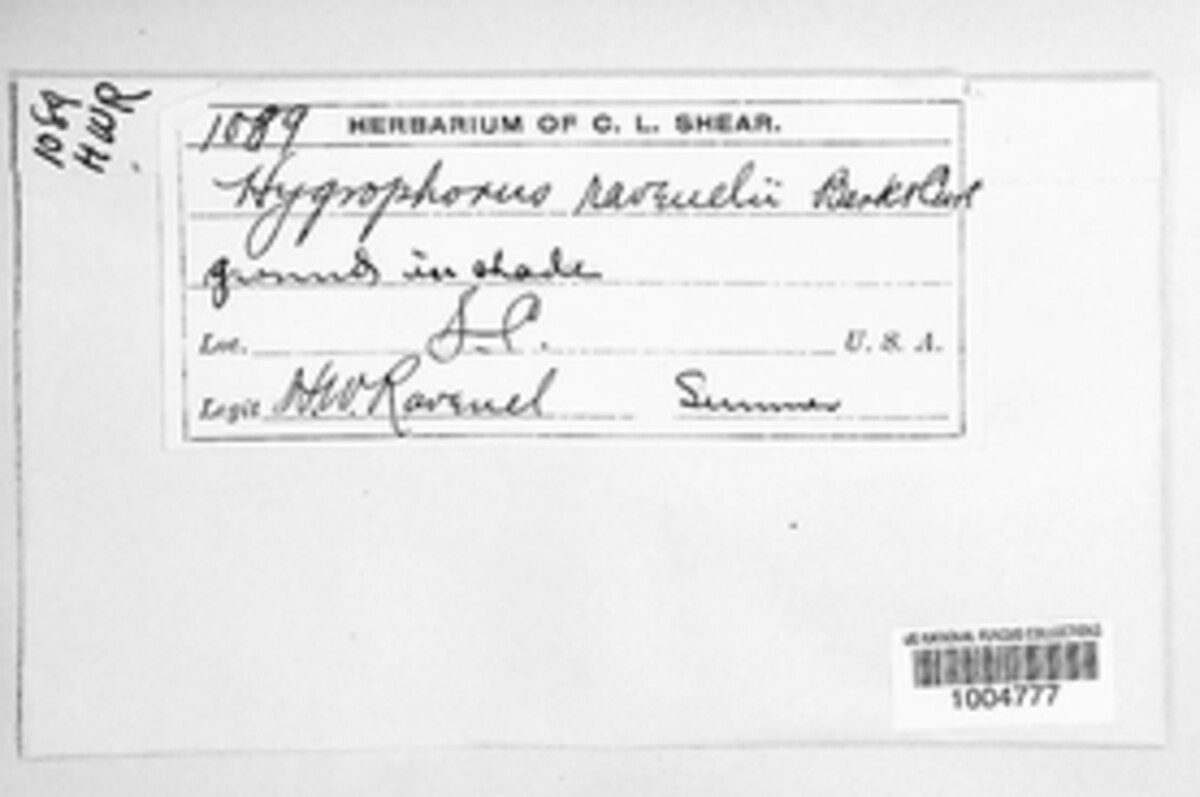 1089
HWR
1089 HERBARIUM OF C. L. SHEAR.
Hygrophorus ravenelii Berk & Curt
ground in shade
Loc. S.C. U. S. A.
Legit H.W. Ravenel Summer
US NATIONAL FUNGUS COLLECTIONS
1004777